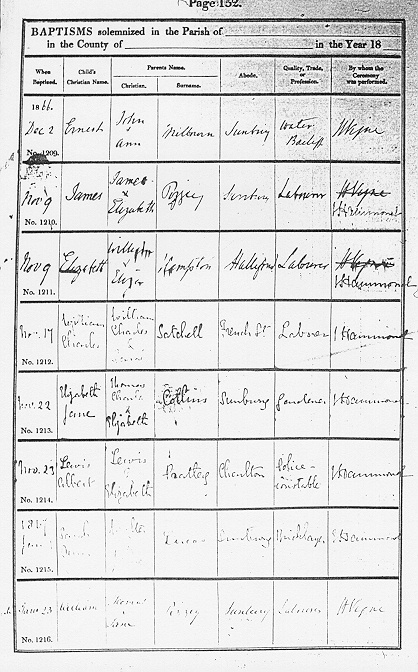 Page 152.
BAPTISMS solemnized in the Parish of
in the County of in the Year 18
When Baptised. Child's Christian Name. Parents Name. Abode. Quality, Trade, or Profession. By whom the Ceremony was performed.
Christian. Surname.
1866.
Dec 2 Ernest John & Ann Milburn Sunbury Water Bailiff H Vigne
No. 1209.
Nov 9 James James & Elizabeth Sunbury Labourer H Vigne
V Hammond
No. 1210.
Nov 9 Elizabeth Eliza Compton Halliford Labourer H Vigne
V Hammond
No. 1211.
Nov. 17 William Charles William Charles & Satchell French St Labourer V Hammond
No. 1212.
Nov. 22 Elizabeth Jane Thomas Charles & Elizabeth Collins Sunbury Gardener V Hammond
No. 1213.
Nov. 23 Lewis Albert Lewis & Elizabeth Charlton Police-constable V Hammond
No. 1214.
1867
Sarah Sunbury Bricklayer V Hammond
No. 1215.
June 23 William Thomas Jane Sunbury Labourer H Vigne
No. 1216.